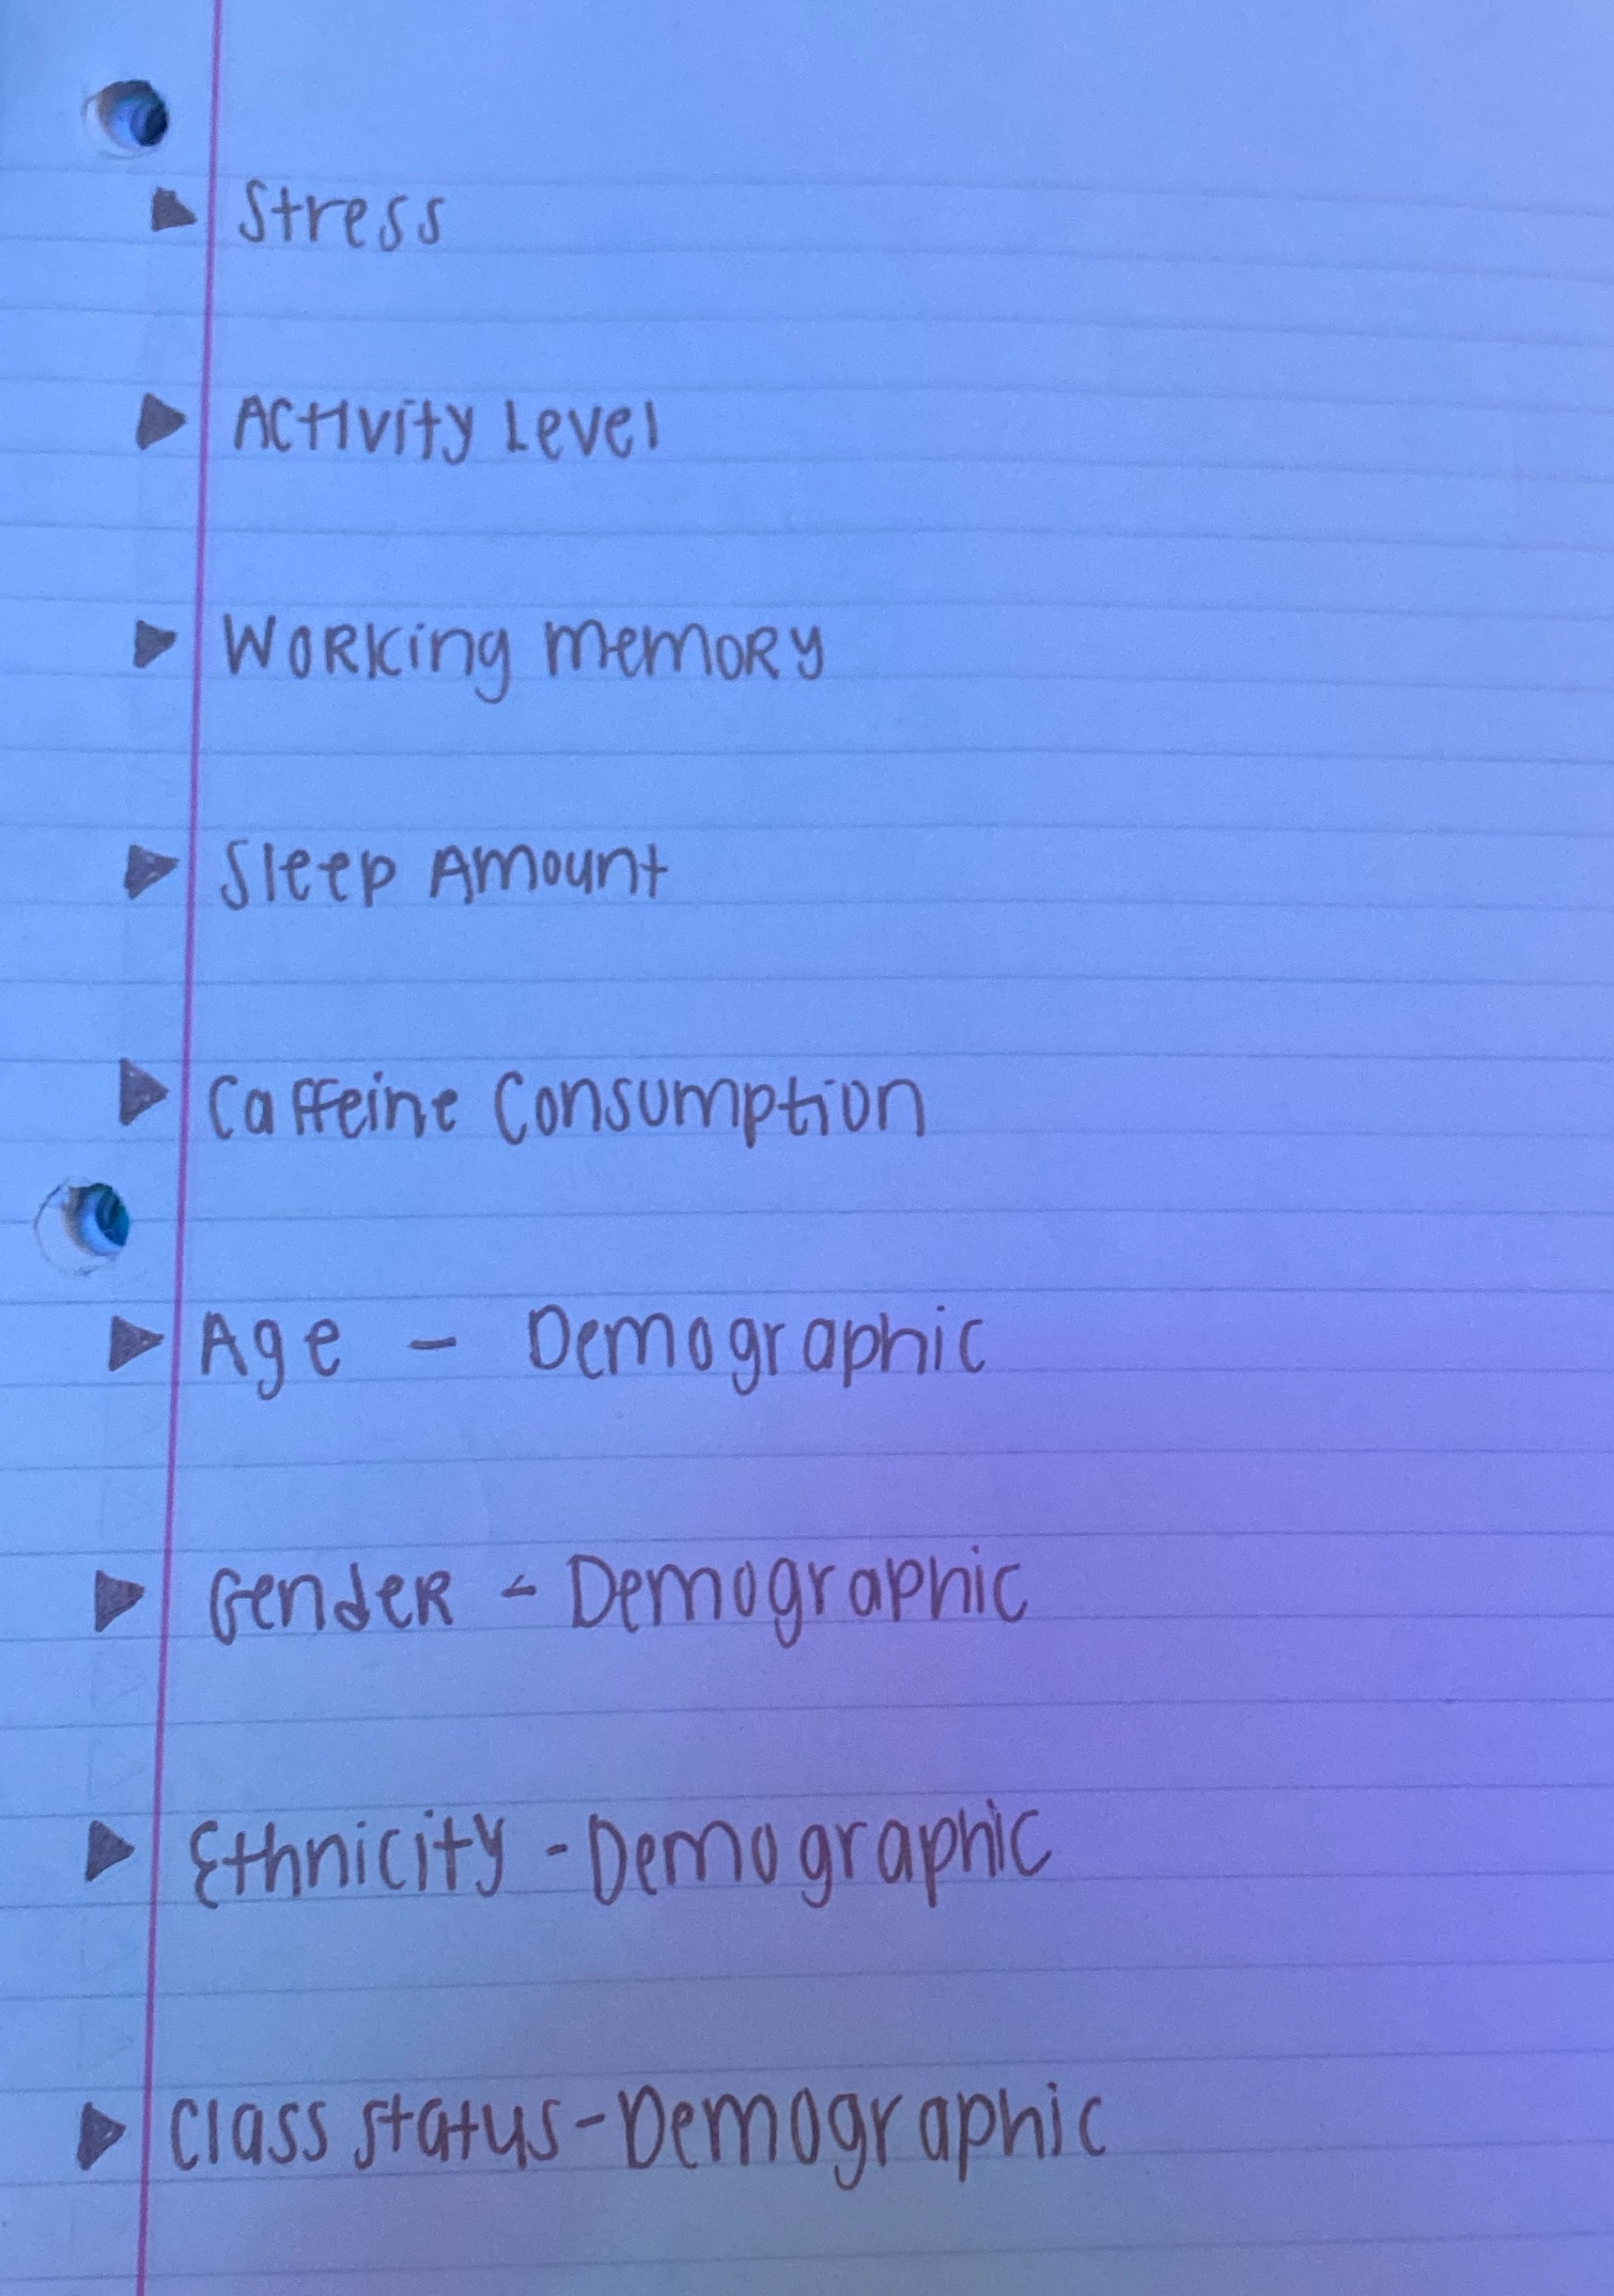 ▶ Stress
▶ Activity Level
▶ Working memory
▶ Sleep Amount
▶ Caffeine Consumption
▶ Age - Demographic
▶ Gender - Demographic
▶ Ethnicity - Demographic
▶ Class status - Demographic